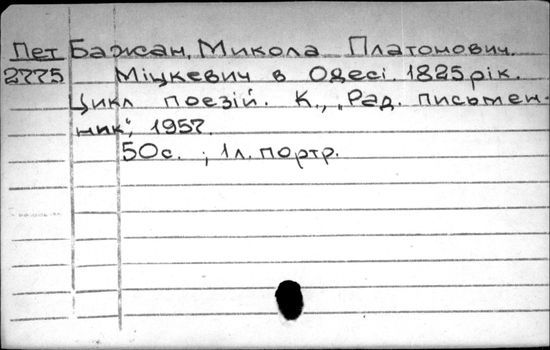 Пет Бажан, Микола Платонович.
2775 Міцкевич в Одесі. 1825 рік.
Цикл поезій. К., „Рад. письмен-
ник", 1957.
50с. ; 1л. портр.